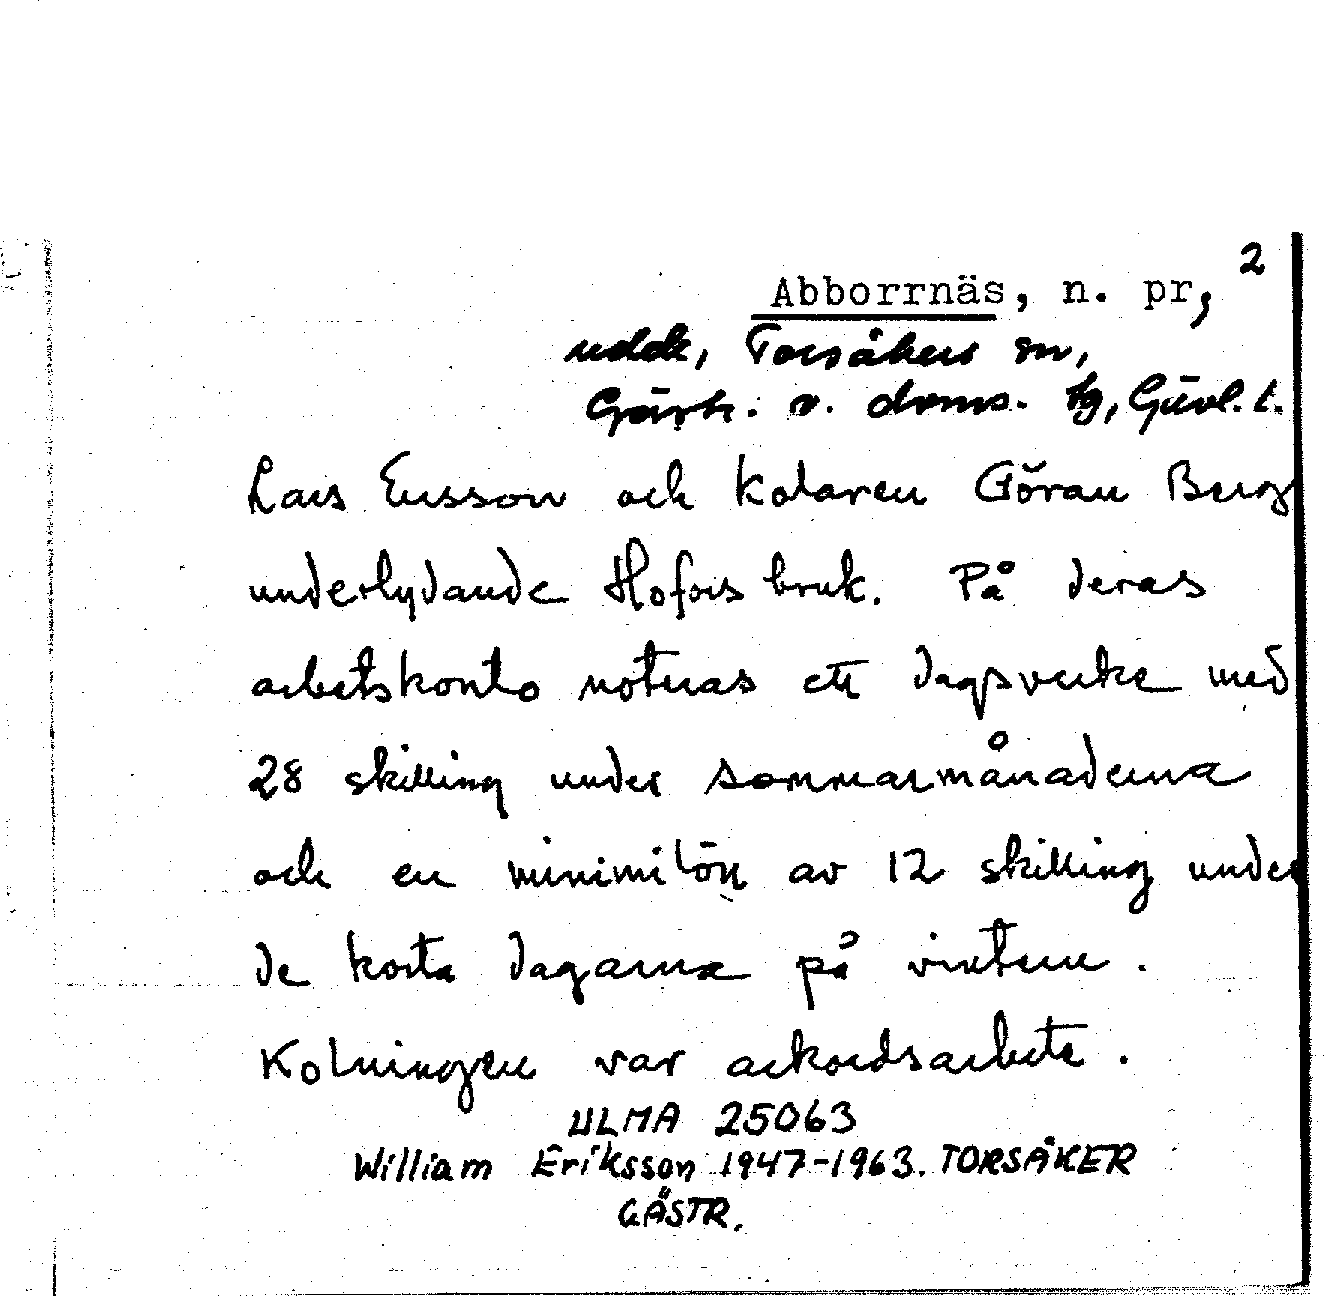 2
Abborrnäs, n. pr,
udde, Torsåkers sn,
Gästr. v. doms. tg, Gävl. l.
Lars Ersson och kolaren Göran Berg
underlydande Hofors bruk. På deras
arbetskonto noteras ett dagsverke med
28 skilling under sommarmånaderna
och en minimilön av 12 skilling under
de korta dagarna på vintern.
Kolningen var ackordsarbete.
ULMA 25063
William Eriksson 1947-1963. TORSÅKER
GÄSTR.